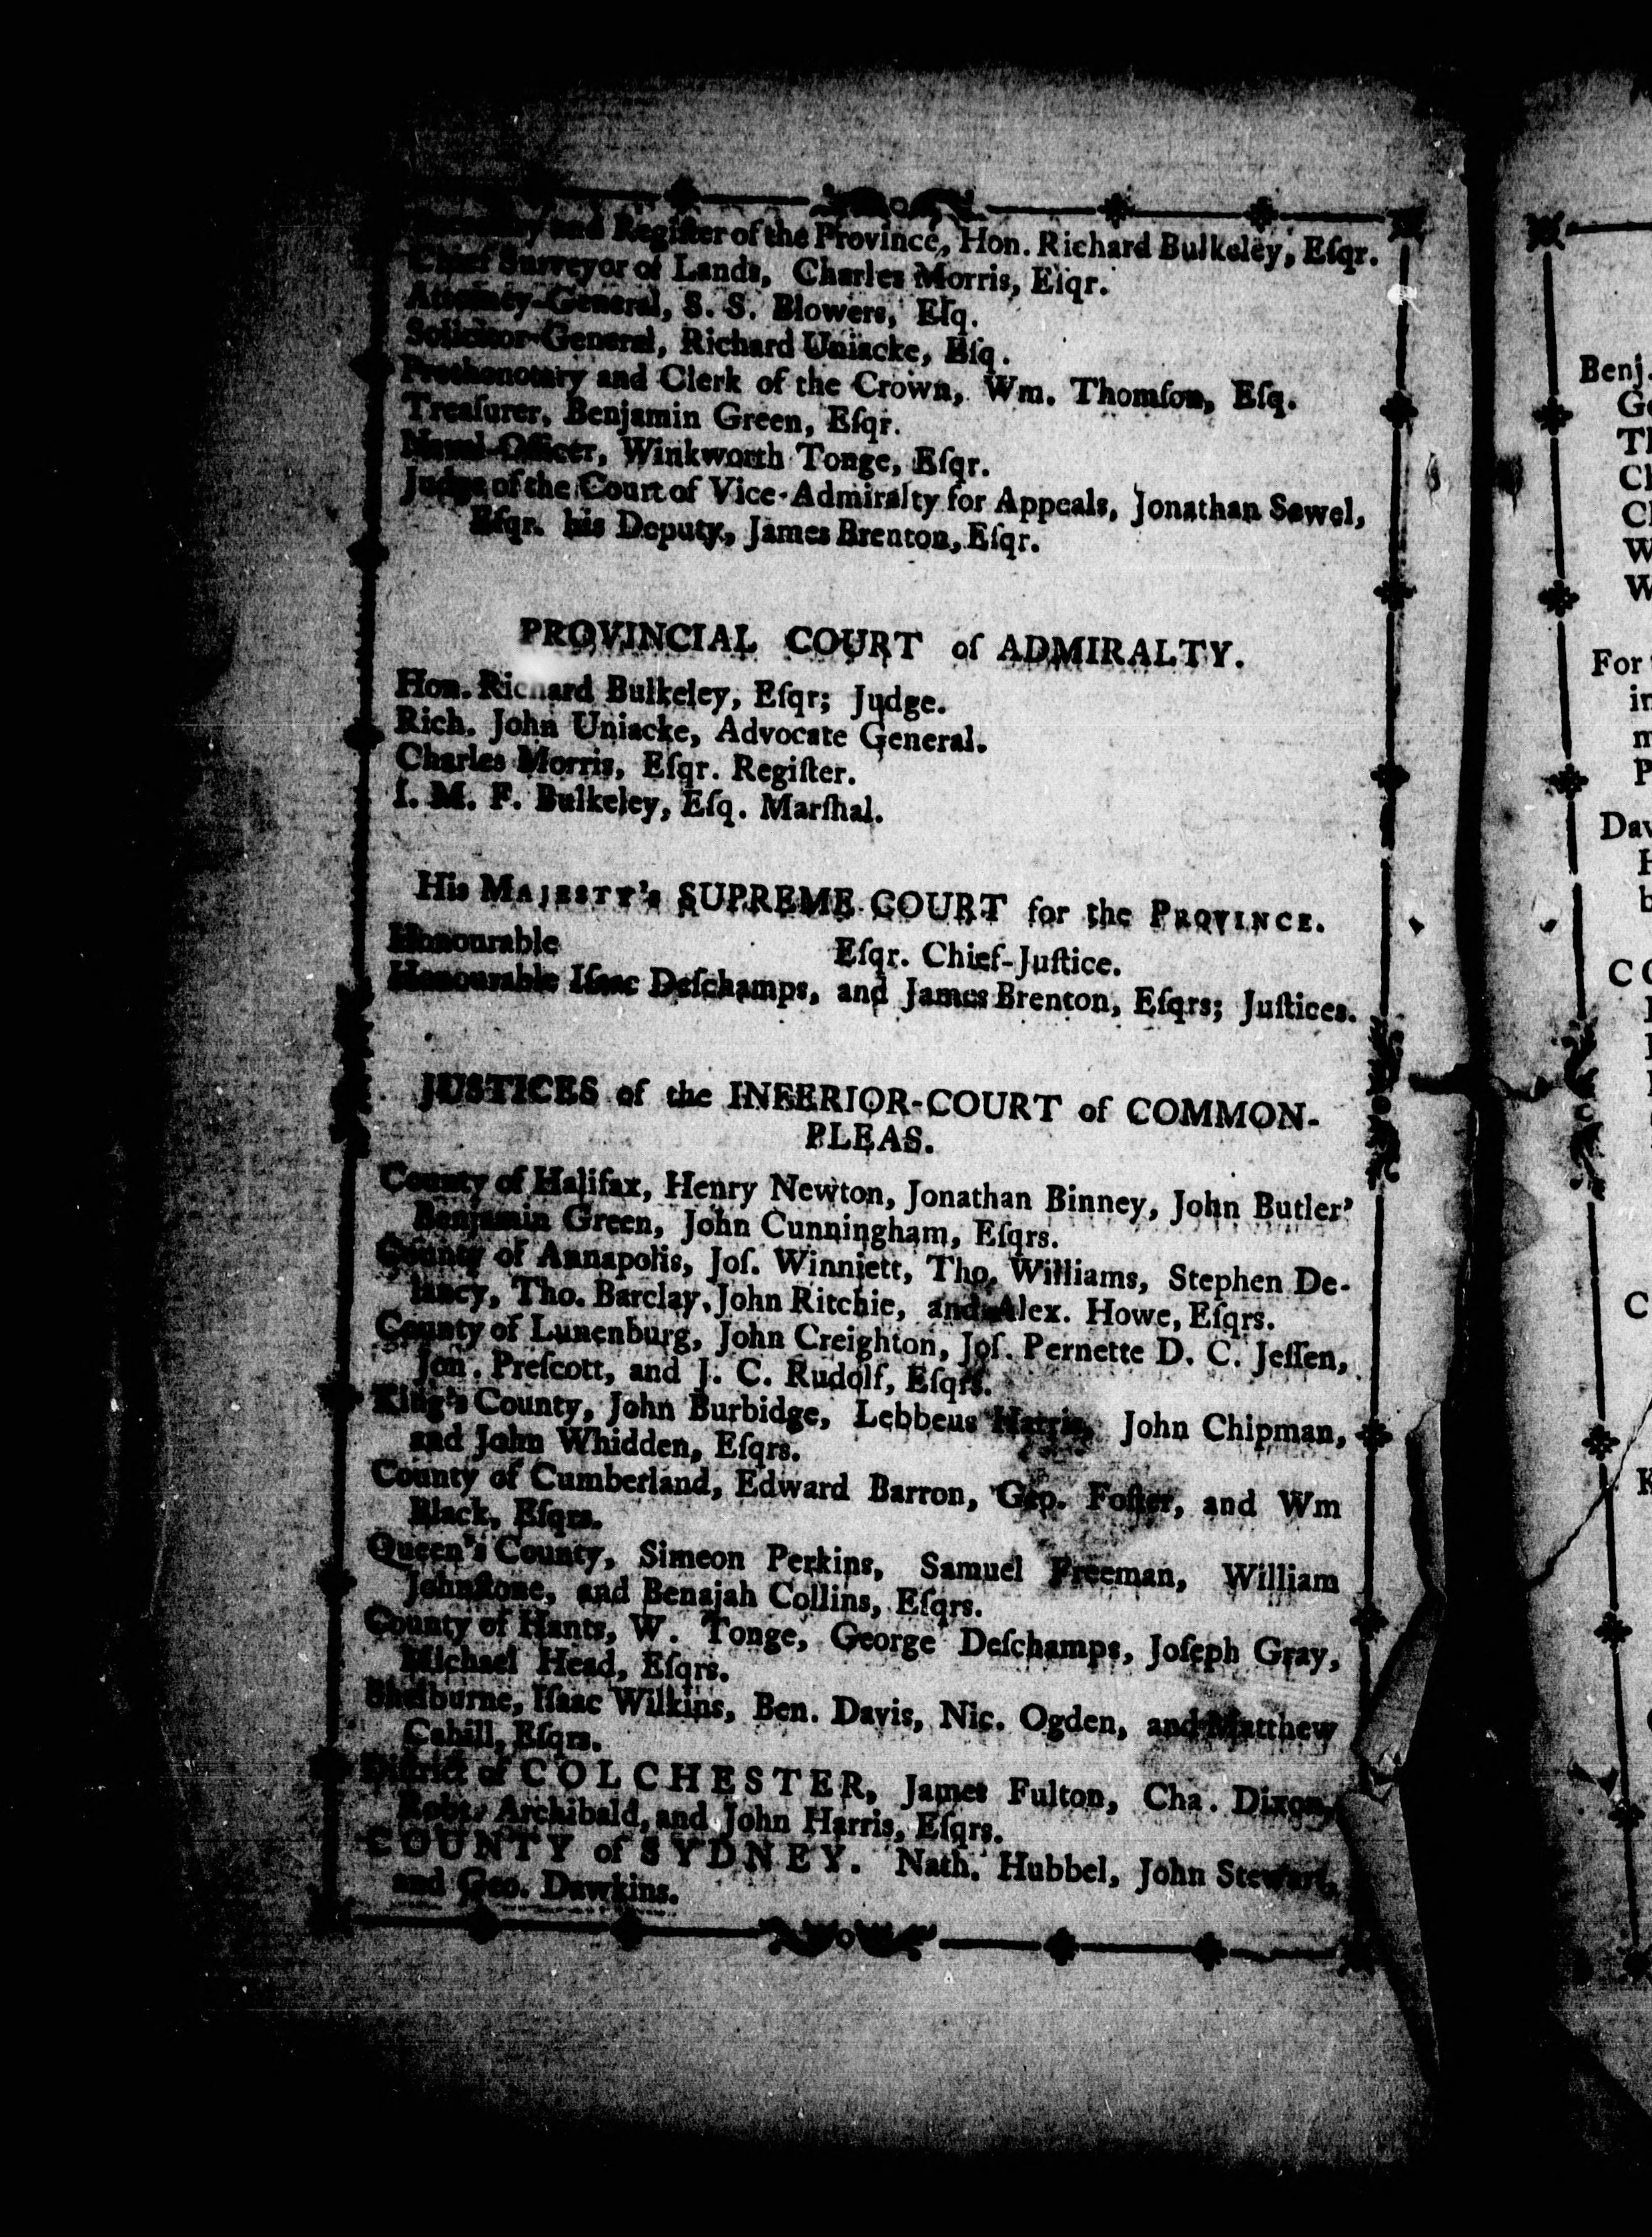 Secretary and Regiſter of the Province, Hon. Richard Bulkeley, Eſqr.
Chief Surveyor of Lands, Charles Morris, Eſqr.
Attorney-General, S. S. Blowers, Eſq.
Solicitor-General, Richard Uniacke, Eſq.
Prothonotary and Clerk of the Crown, Wm. Thomſon, Eſq.
Treaſurer, Benjamin Green, Eſqr.
Naval-Officer, Winkworth Tonge, Eſqr.
Judge of the Court of Vice-Admiralty for Appeals, Jonathan Sewel,
Eſqr. his Deputy, James Brenton, Eſqr.
PROVINCIAL COURT of ADMIRALTY.
Hon. Richard Bulkeley, Eſqr; Judge.
Rich. John Uniacke, Advocate General.
Charles Morris, Eſqr. Regiſter.
I. M. F. Bulkeley, Eſq. Marſhal.
His MAJESTY's SUPREME COURT for the PROVINCE.
Honourable Eſqr. Chief-Juſtice.
Honourable Iſaac Deſchamps, and James Brenton, Eſqrs; Juſtices.
JUSTICES of the INFERIOR-COURT of COMMON-
PLEAS.
County of Halifax, Henry Newton, Jonathan Binney, John Butler'
Benjamin Green, John Cunningham, Eſqrs.
County of Annapolis, Joſ. Winniett, Tho. Williams, Stephen De-
lancy, Tho. Barclay, John Ritchie, and Alex. Howe, Eſqrs.
County of Lunenburg, John Creighton, Joſ. Pernette D. C. Jeſſen,
Jon. Preſcott, and J. C. Rudolf, Eſqrs.
King's County, John Burbidge, Lebbeus Harris, John Chipman,
and John Whidden, Eſqrs.
County of Cumberland, Edward Barron, Geo. Foſter, and Wm
Black, Eſqrs.
Queen's County, Simeon Perkins, Samuel Freeman, William
Johnſtone, and Benajah Collins, Eſqrs.
County of Hants, W. Tonge, George Deſchamps, Joſeph Gray,
Michael Head, Eſqrs.
Shelburne, Iſaac Wilkins, Ben. Davis, Nic. Ogden, and Matthew
Cahill, Eſqrs.
District of COLCHESTER, James Fulton, Cha. Dixon,
Robt. Archibald, and John Harris, Eſqrs.
COUNTY of SYDNEY. Nath. Hubbel, John Stewart,
and Geo. Dawkins.
Benj.
For